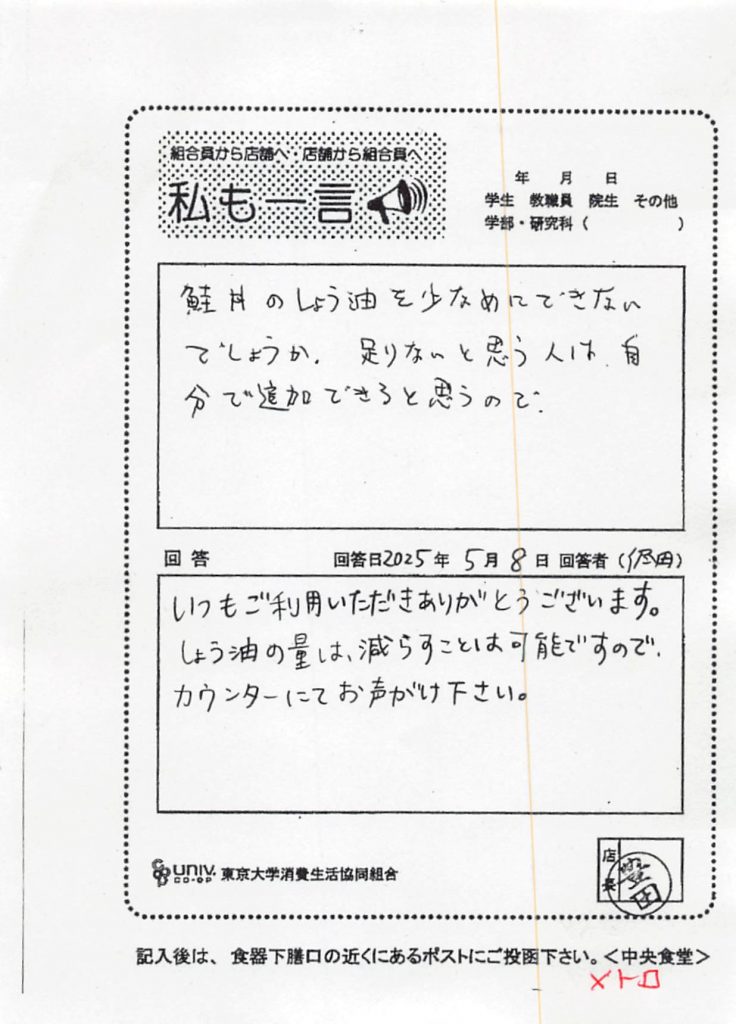 組合員から店舗へ・店舗から組合員へ
私も一言
年 月 日
学生 教職員 院生 その他
学部・研究科( )
鮭丼のしょう油を少なめにできない
でしょうか. 足りないと思う人は、自
分で追加できると思うので.
回答 回答日2025年 5月 8日 回答者(佐田)
いつもご利用いただきありがとうございます。
しょう油の量は、減らすことは可能ですので、
カウンターにてお声がけ下さい。
UNIV. CO-OP 東京大学消費生活協同組合
店長
記入後は、食器下膳口の近くにあるポストにご投函下さい。<中央食堂>
メトロ